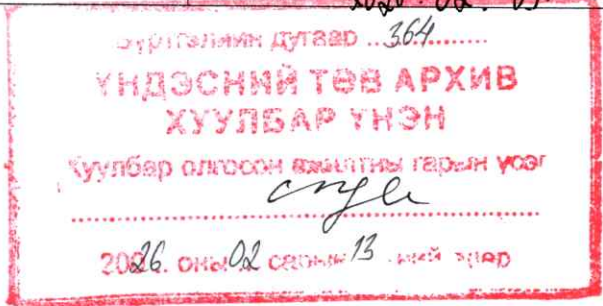 Бүртгэлийн дугаар ...364...........
ҮНДЭСНИЙ ТӨВ АРХИВ
ХУУЛБАР ҮНЭН
Хуулбар олгосон ажилтны гарын үсэг
2026. оны 02 сарын 13 -ний өдөр